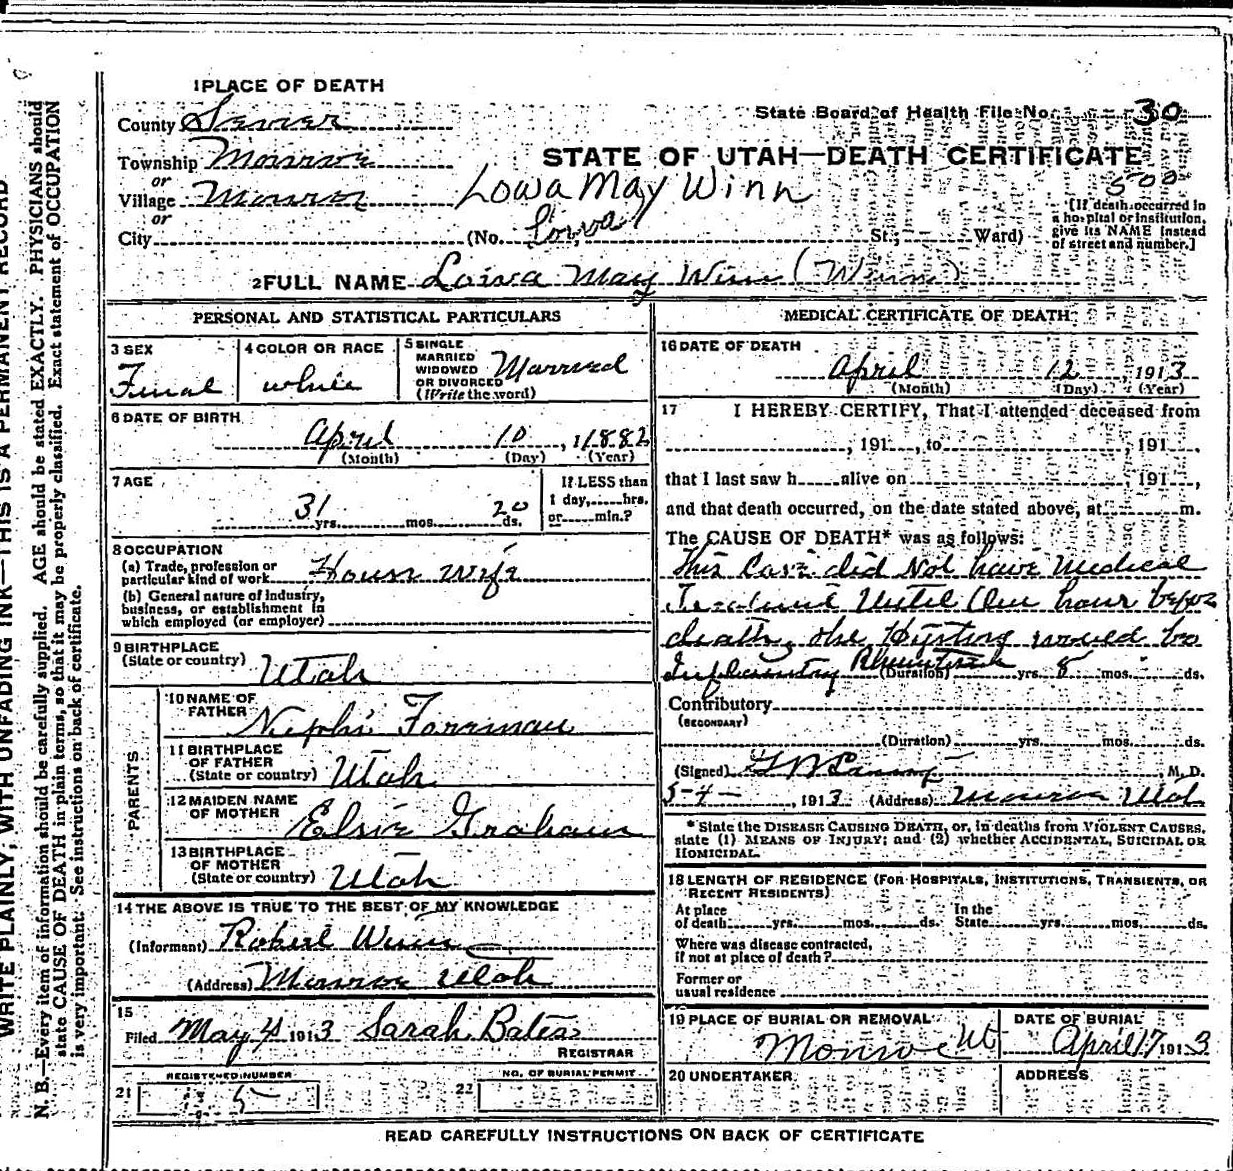 1 PLACE OF DEATH
County Sevier
State Board of Health File No. 30
Township Monroe
STATE OF UTAH—DEATH CERTIFICATE
or
Village Monroe
Lowa May Winn
500
or
City (No. Lowa St.; Ward)
[If death occurred in a hospital or institution, give its NAME instead of street and number.]
2 FULL NAME Loiva May Winn (Winn)
PERSONAL AND STATISTICAL PARTICULARS
3 SEX Femal
4 COLOR OR RACE white
5 SINGLE MARRIED WIDOWED OR DIVORCED (Write the word) Married
6 DATE OF BIRTH
April 10, 1882
(Month) (Day) (Year)
7 AGE
31 yrs. mos. 20 ds.
If LESS than
1 day, hrs.
or min.?
8 OCCUPATION
(a) Trade, profession or
particular kind of work House wife
(b) General nature of industry,
business, or establishment in
which employed (or employer)
9 BIRTHPLACE
(State or country) Utah
PARENTS
10 NAME OF
FATHER Nephi Forrman
11 BIRTHPLACE
OF FATHER
(State or country) Utah
12 MAIDEN NAME
OF MOTHER Elsie Graham
13 BIRTHPLACE
OF MOTHER
(State or country) Utah
14 THE ABOVE IS TRUE TO THE BEST OF MY KNOWLEDGE
(Informant) Robert Winn
(Address) Monroe Utah
15
Filed May 4 1913 Sarah Bates
REGISTRAR
21 REGISTERED NUMBER 5
22 NO. OF BURIAL PERMIT
MEDICAL CERTIFICATE OF DEATH
16 DATE OF DEATH
April 12 1913
(Month) (Day) (Year)
17 I HEREBY CERTIFY, That I attended deceased from
, 191 , to , 191 ,
that I last saw h alive on , 191 ,
and that death occurred, on the date stated above, at m.
The CAUSE OF DEATH* was as follows:
This Case did Not have Medical
Until One hour before
death, the would be
(Duration) yrs. 8 mos. ds.
Contributory
(SECONDARY)
(Duration) yrs. mos. ds.
(Signed) M. D.
5-4-, 1913 (Address) Monroe Utah
*State the DISEASE CAUSING DEATH, or, in deaths from VIOLENT CAUSES,
state (1) MEANS OF INJURY; and (2) whether ACCIDENTAL, SUICIDAL OR
HOMICIDAL.
18 LENGTH OF RESIDENCE (FOR HOSPITALS, INSTITUTIONS, TRANSIENTS, OR
RECENT RESIDENTS)
At place of death yrs. mos. ds. In the State yrs. mos. ds.
Where was disease contracted,
if not at place of death?
Former or
usual residence
19 PLACE OF BURIAL OR REMOVAL Monroe Ut
DATE OF BURIAL April 17 1913
20 UNDERTAKER
ADDRESS
READ CAREFULLY INSTRUCTIONS ON BACK OF CERTIFICATE
WRITE PLAINLY, WITH UNFADING INK—THIS IS A PERMANENT RECORD
N. B.—Every item of information should be carefully supplied. AGE should be stated EXACTLY. PHYSICIANS should
state CAUSE OF DEATH in plain terms, so that it may be properly classified. Exact statement of OCCUPATION
is very important. See instructions on back of certificate.